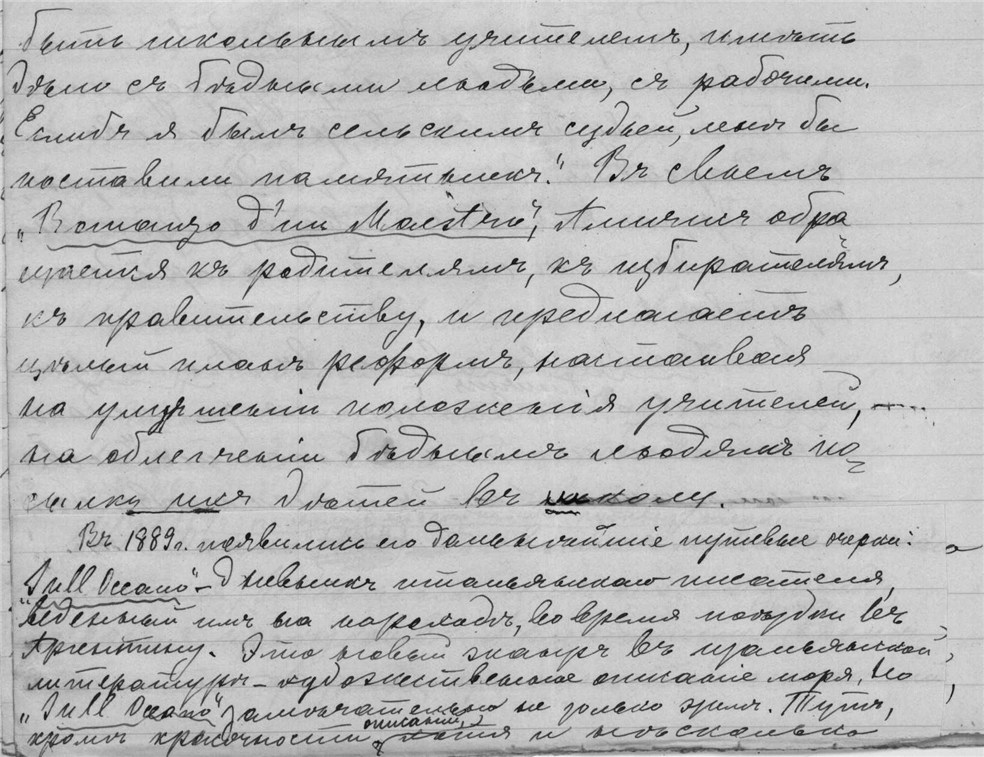 быть школьнымъ учителемъ, имѣть
дѣло съ бѣдными людьми, съ рабочими.
Еслибъ я былъ сельскимъ судьей, мнѣ бы
поставили памятникъ." Въ своемъ
„Romanzo d'un Maestro", Амичисъ обра
щается къ родителямъ, къ избирателямъ,
къ правительству, и предлагаетъ
цѣлый планъ реформъ, настаивая
на улучшеніи положенія учителей,
на облегченіи бѣднымъ людямъ по
сылки ихъ дѣтей въ школу.
Въ 1889 г. появились его дальнѣйшіе путевые очерки:
„Sull Oceano" – дневникъ итальянскаго писателя,
веденный имъ на пароходѣ, во время поѣздки въ
Аргентину. Это новый жанръ въ итальянской
литературѣ – художественное описаніе моря, но
„Sull Oceano" замѣчательно не только этимъ. Тутъ,
кромѣ красочности описаній, и нѣсколько